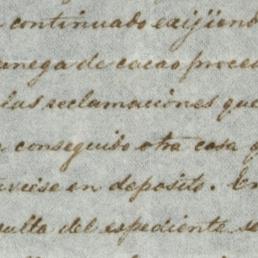 continuado exijiend
anega de cacao proce
las reclamaciones que
conseguido otra cosa
en deposito. En
sulta del expediente se